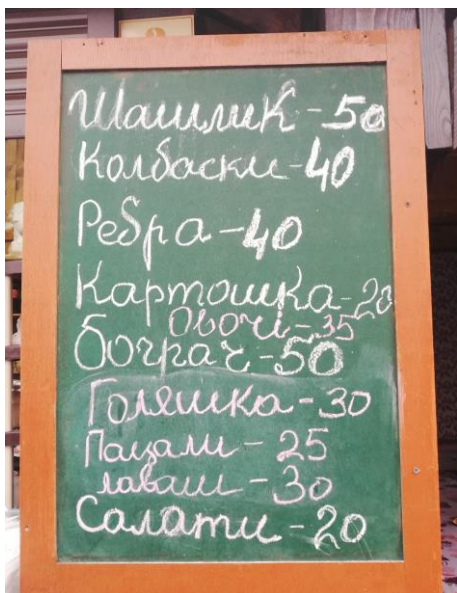 Шашлик-50
Колбаски-40
Ребра-40
Картошка-20
Овочі-35
бограч-50
Голяшка-30
Пацали-25
лаваш-30
Салати-20